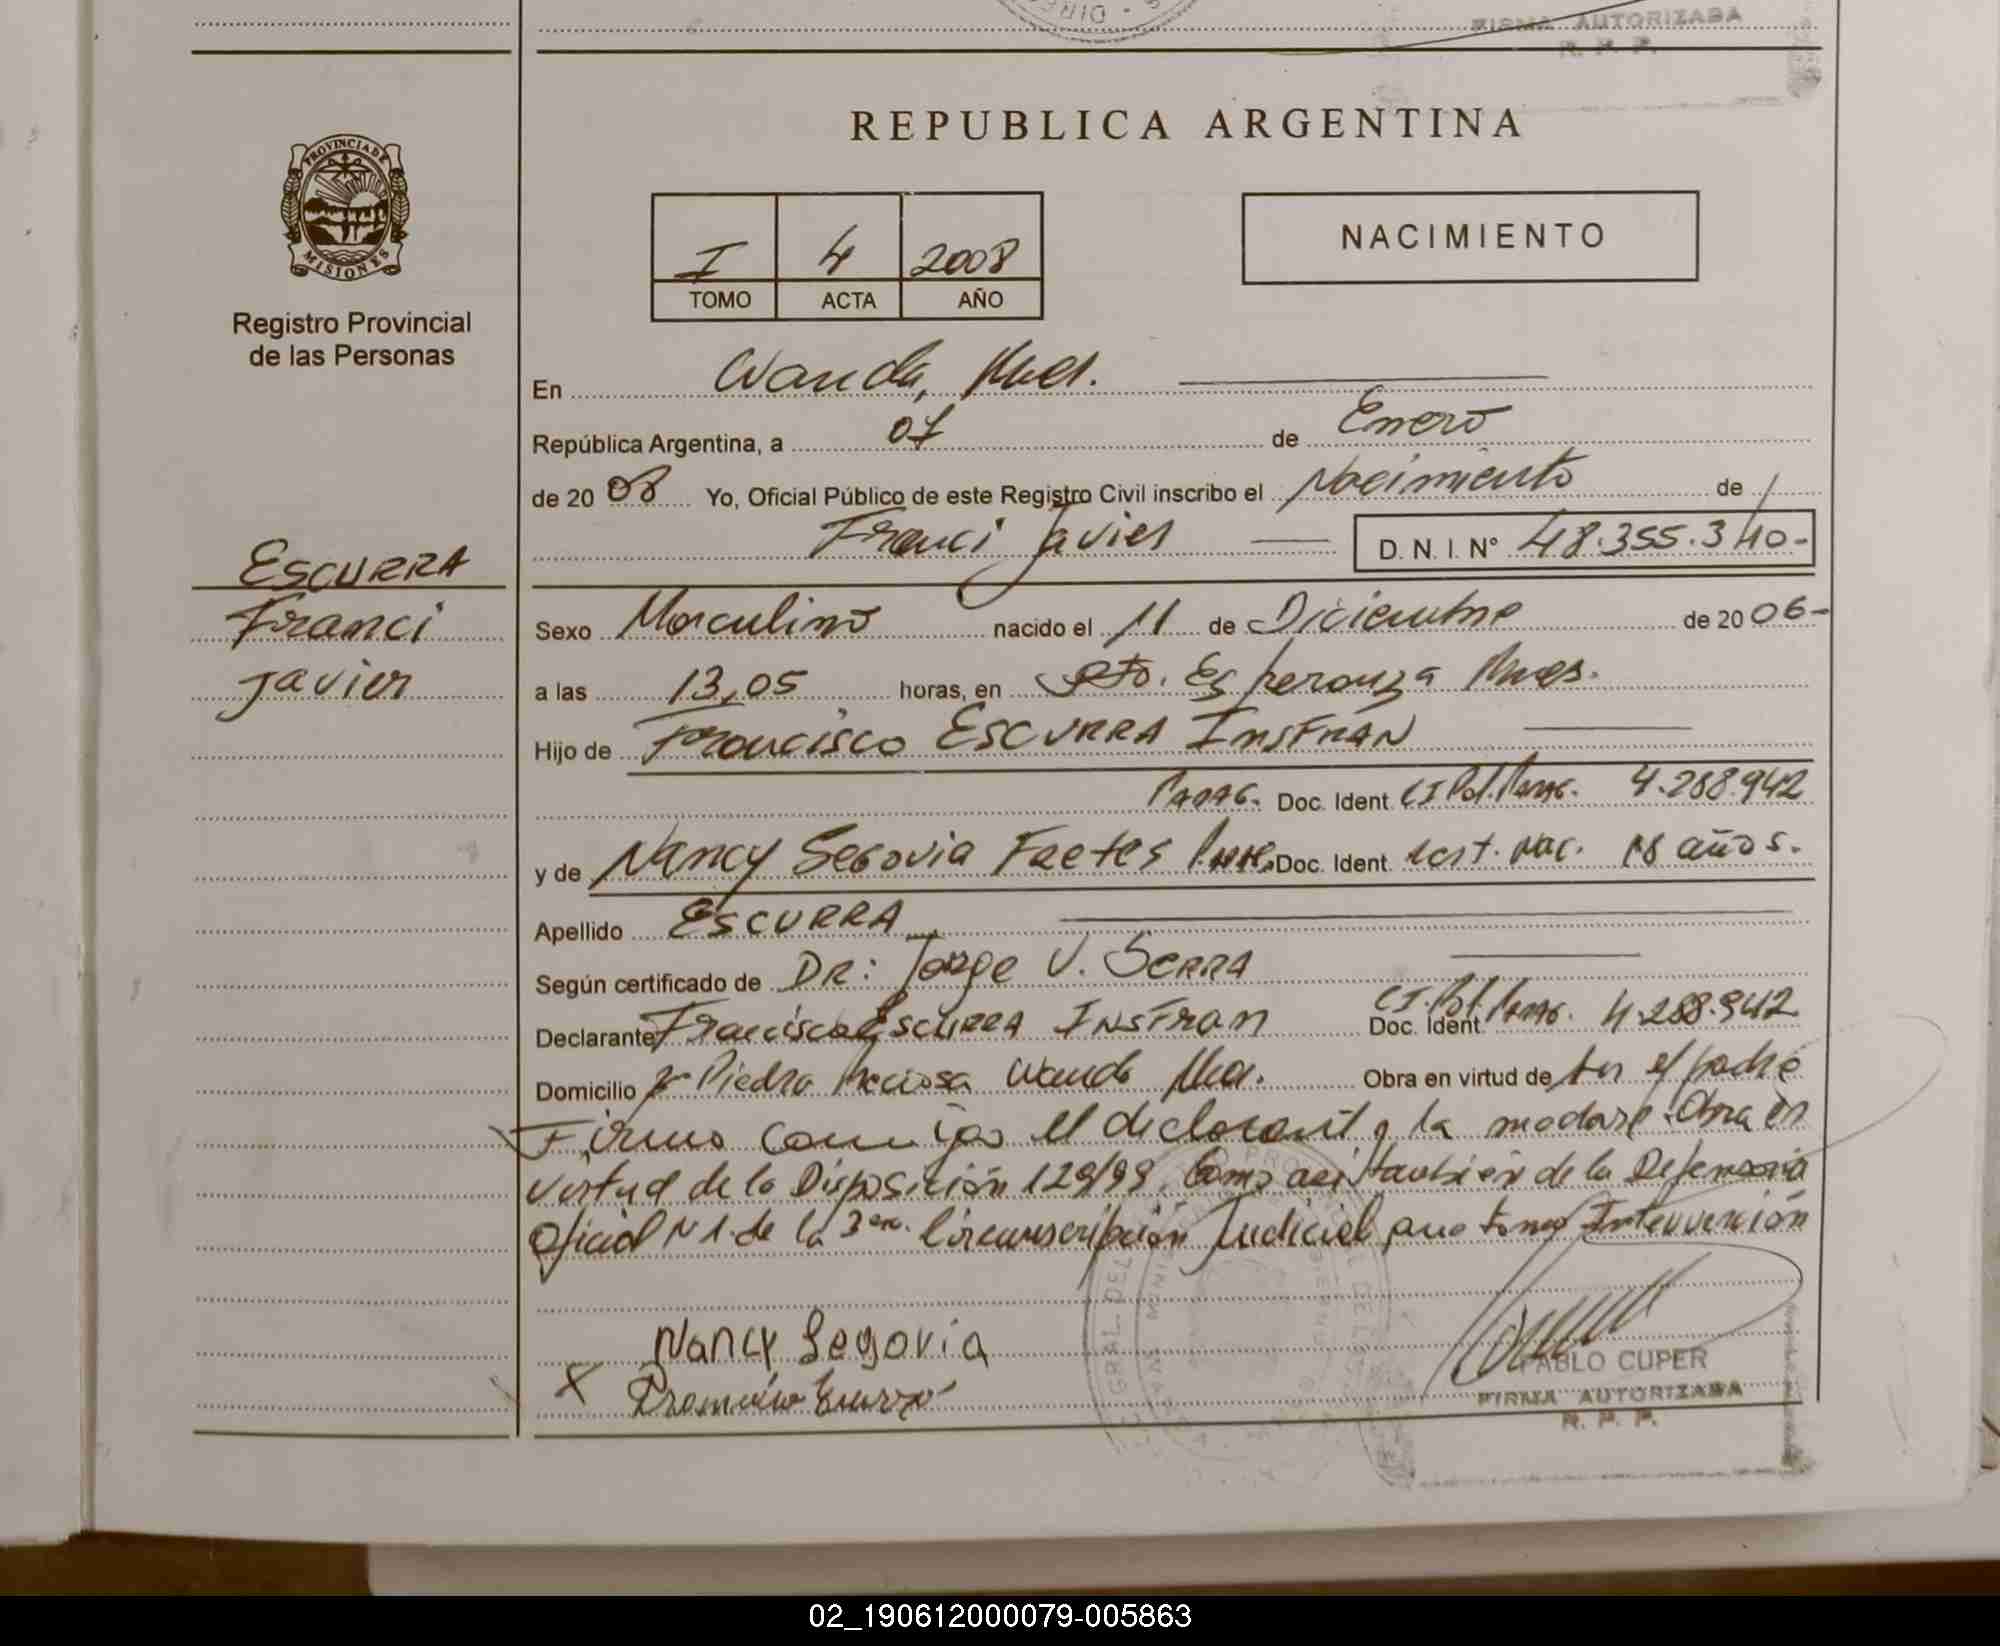 FIRMA AUTORIZADA
R. P. P.
REPUBLICA ARGENTINA
PROVINCIA DE
MISIONES
I 4 2008
TOMO ACTA AÑO
NACIMIENTO
Registro Provincial
de las Personas
En Wanda, Mnes.
República Argentina, a 07 de Enero
de 2008 Yo, Oficial Público de este Registro Civil inscribo el Nacimiento de
Franci Javier D. N. I. N° 48.355.340-
ESCURRA
Franci
Javier
Sexo Masculino nacido el 11 de Diciembre de 2006-
a las 13,05 horas, en Pto. Esperanza Mnes.
Hijo de Francisco ESCURRA INSFRAN
Parag. Doc. Ident. CI Pol. Parag. 4.288.942
y de Nancy Segovia Faetes Parag. Doc. Ident. Cert. Nac. 18 años.
Apellido ESCURRA
Según certificado de DR: Jorge V. SERRA
Declarante Francisco ESCURRA INSFRAN Doc. Ident CI. Pol. Parag. 4.288.942
Domicilio Piedra Preciosa Wanda Mnes. Obra en virtud de ser el padre
Firma conmigo el declarante y la madre. Obra en
virtud de la Disposición 129/99, como así también de la Defensoria
Oficial N 1. de la 3era. Circunscripción Judicial que toma Intervención
Nancy Segovia
X
PABLO CUPER
FIRMA AUTORIZADA
R. P. P.
02_190612000079-005863